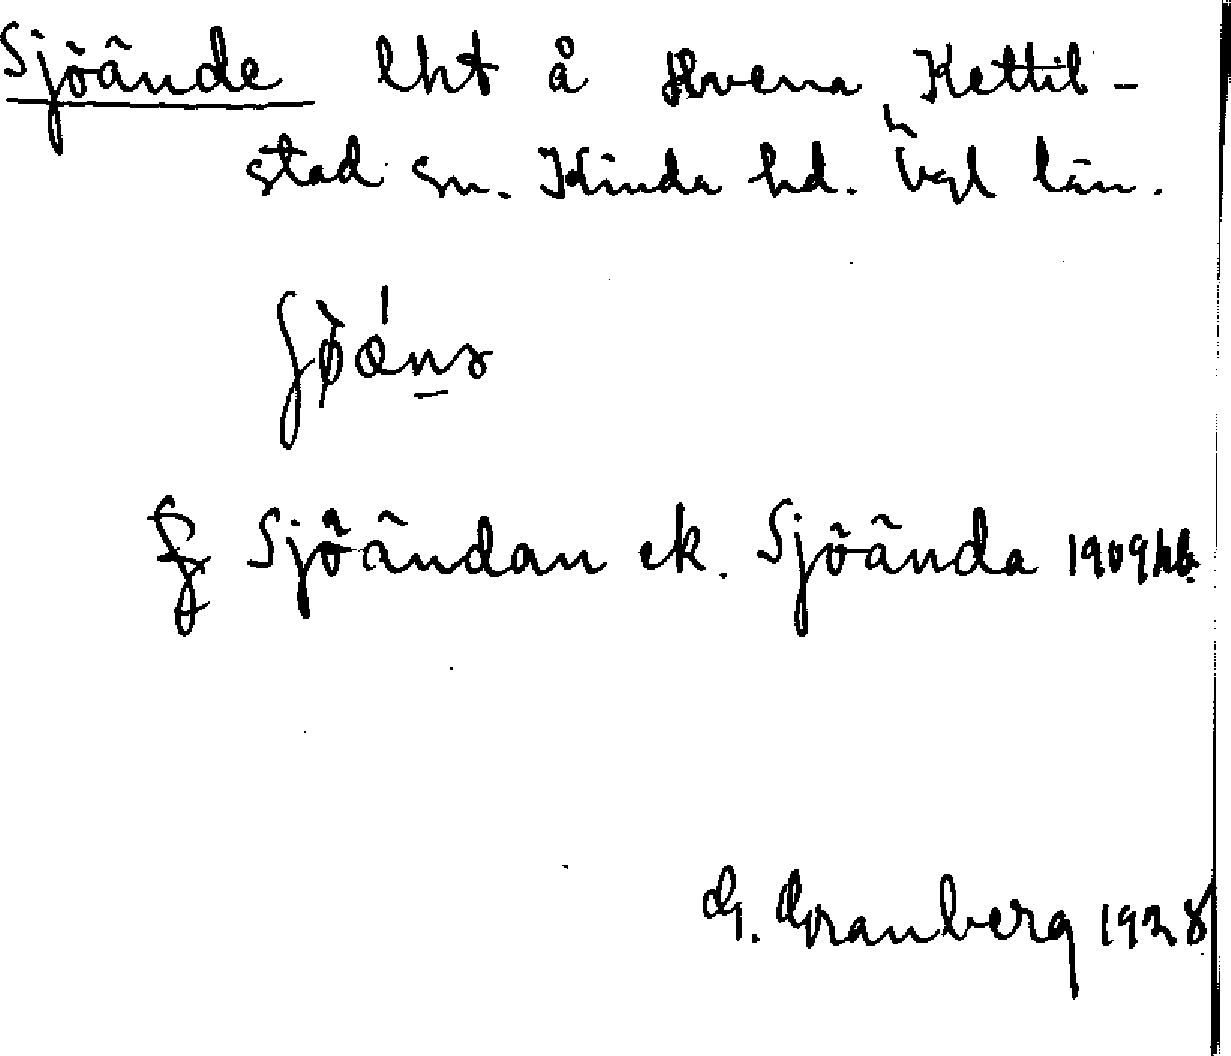 Sjöände lht å Hvena Kettil-
stad sn. Kinda hd. Ögl län.
Sjöändan ek. Sjöända 1909 kb.
G. Granberg 1928